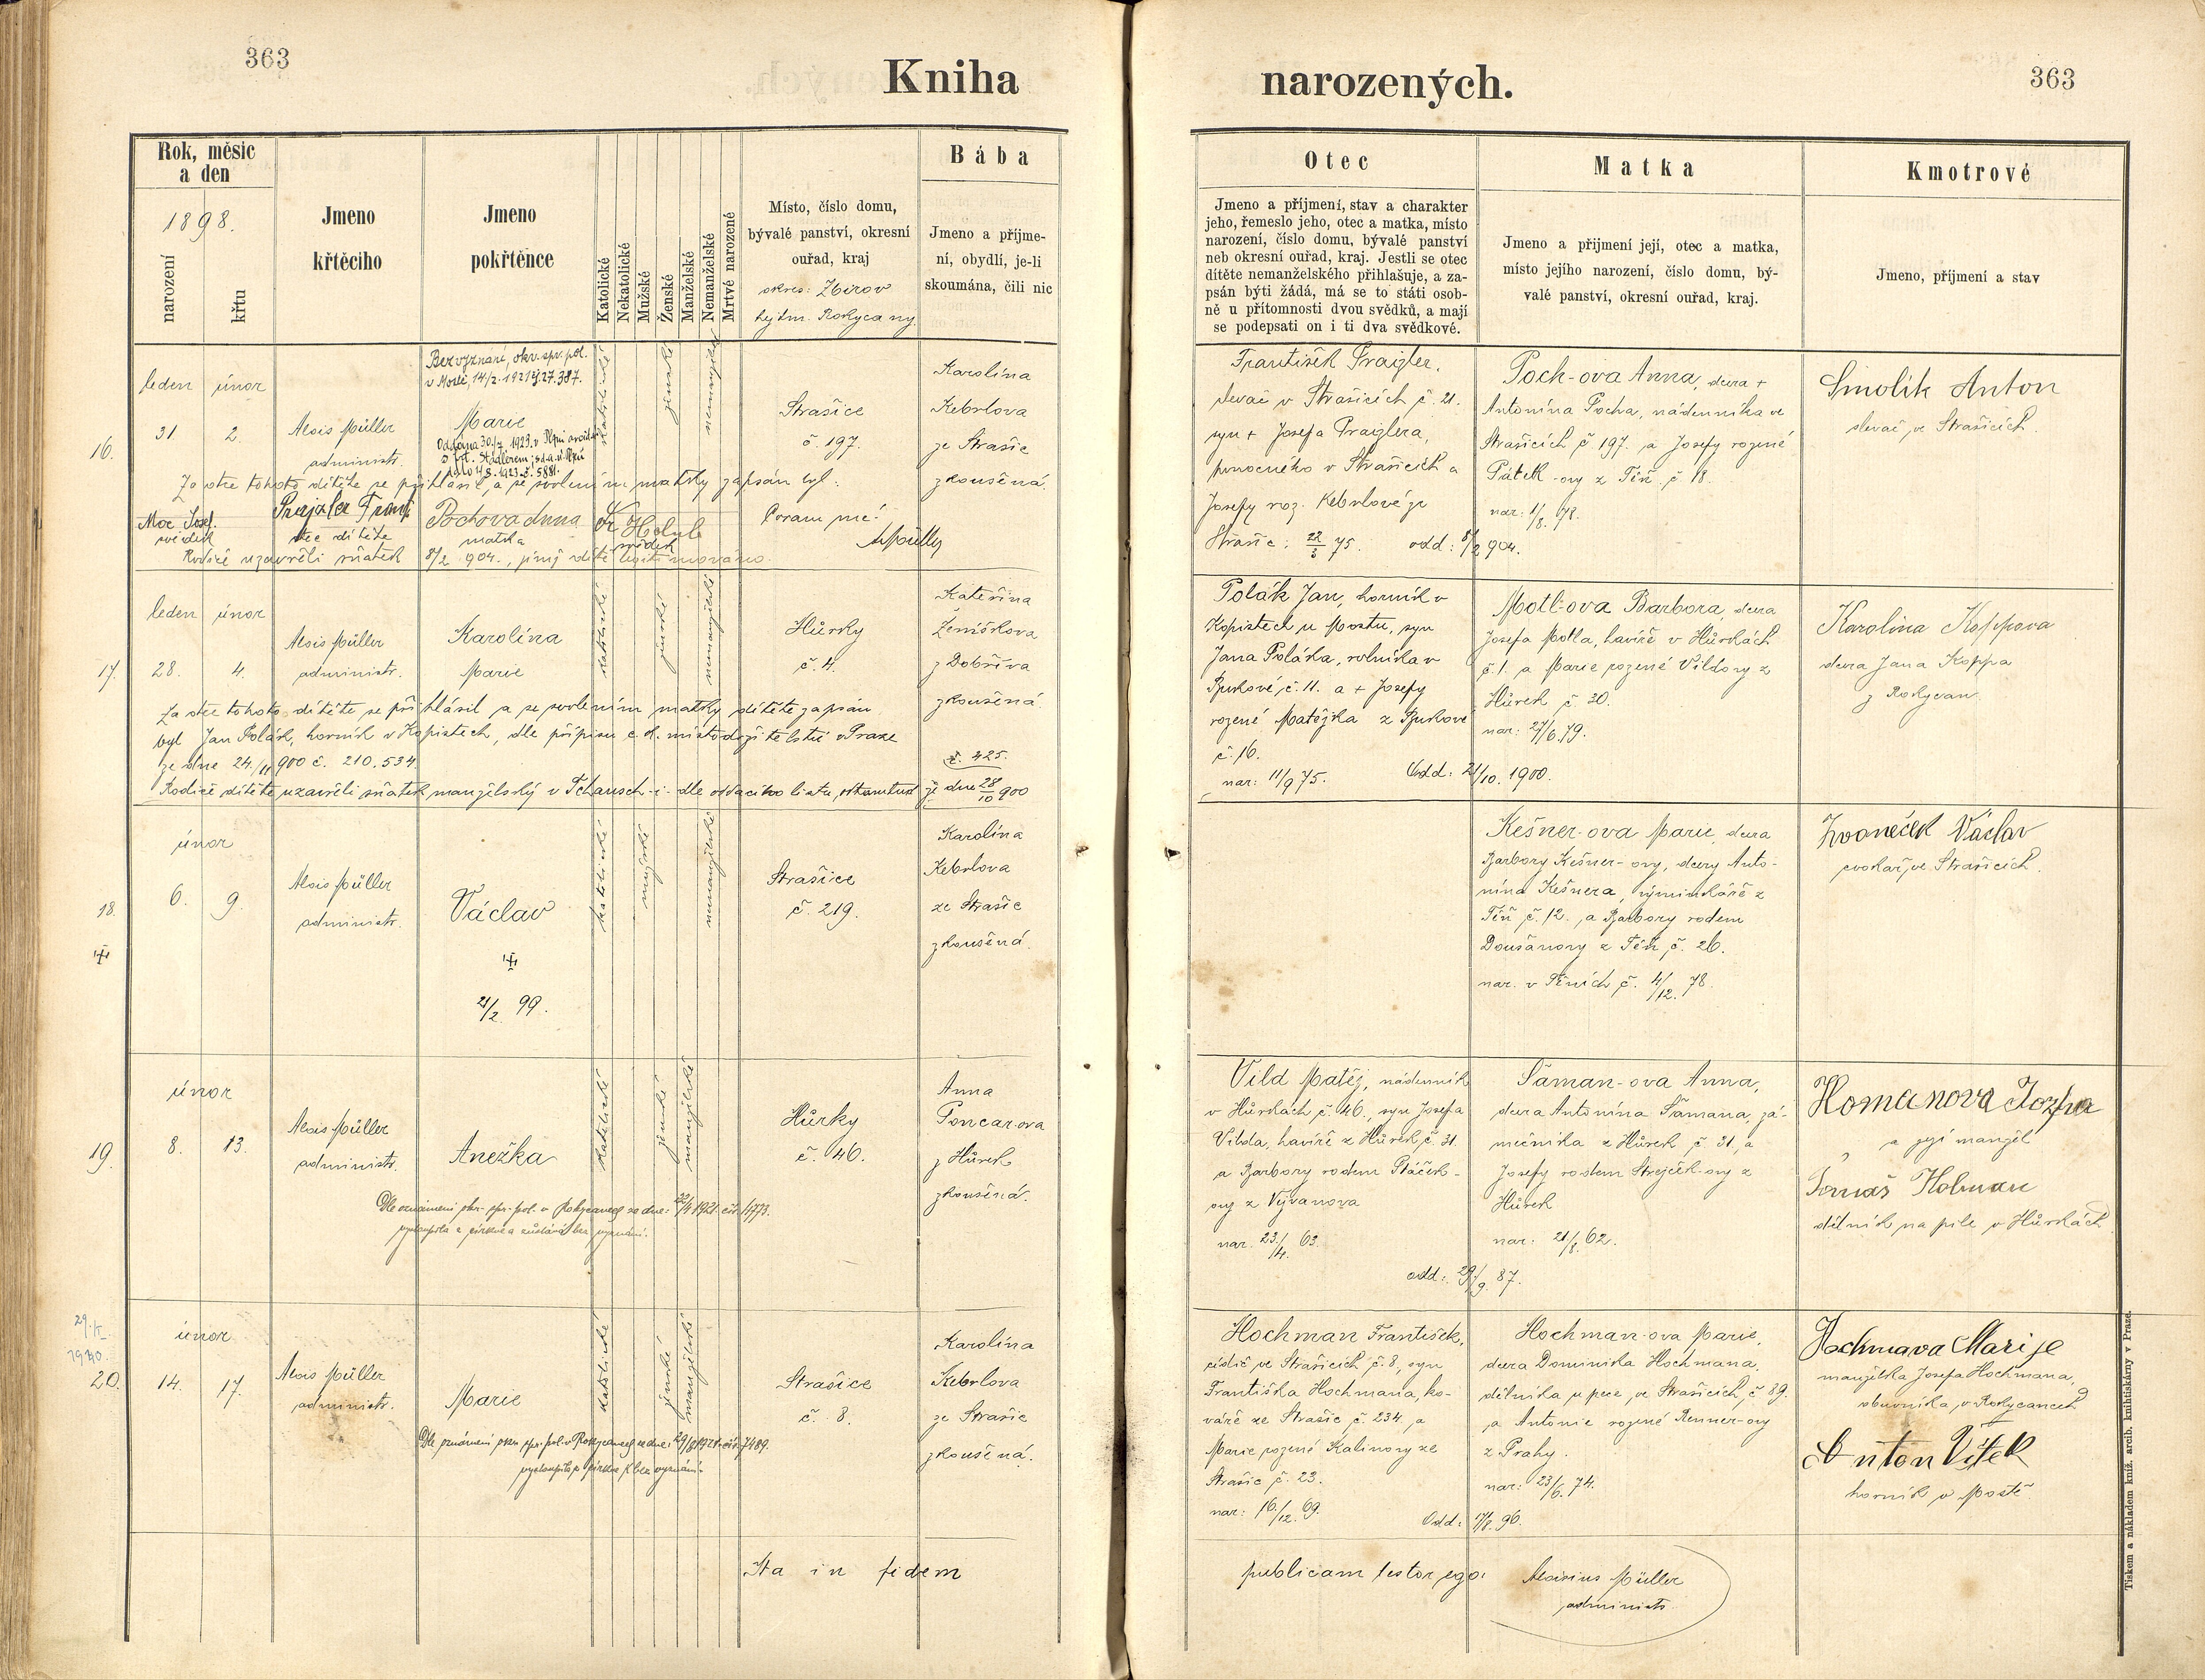 363
Kniha
narozených.
363
Rok, měsíc
a den
1898.
narození
křtu
Jmeno
křtěciho
Jmeno
pokřtěnce
Katolické
Nekatolické
Mužské
Ženské
Manželské
Nemanželské
Mrtvé narozené
Místo, číslo domu,
bývalé panství, okresní
ouřad, kraj
okres: Zbirov
hejtm. Rokycany.
Bába
Jmeno a příjme-
ní, obydlí, je-li
skoumána, čili nic
Otec
Jmeno a příjmení, stav a charakter
jeho, řemeslo jeho, otec a matka, místo
narození, číslo domu, bývalé panství
neb okresní ouřad, kraj. Jestli se otec
dítěte nemanželského přihlašuje, a za-
psán býti žádá, má se to státi osob-
ně u přítomnosti dvou svědků, a mají
se podepsati on i ti dva svědkové.
Matka
Jmeno a přijmení její, otec a matka,
místo jejího narození, číslo domu, bý-
valé panství, okresní ouřad, kraj.
Kmotrové
Jmeno, příjmení a stav
16.
leden únor
31 2.
Alois Müller
administr.
Bez vyznání, okr. spr. pol.
v Mostě, 14/2. 1921 č. 27.387.
Marie
katolické
ženské
nemanželské
Strašice
č. 197.
Karolína
Kebrlova
ze Strašic
zkoušená.
Za otce tohoto dítěte se přihlásil, a se svolením matky zapsán byl:
Moc Josef.
svědek
Prajzler Frant
otec dítěte
Pochova Anna
matka
Fr Holub
svědek
Coram me:
AMüller
Rodiče uzavřeli sňatek 8/2 904., jímž dítě legitimováno
František Praizler,
slevač v Strašicích č. 21.
syn + Josefa Praizlera,
pomocného v Strašicích a
Josefy roz. Kebrlové ze
Strašic; 22/3 75. odd: 8/2 904.
Poch-ova Anna, dcera +
Antonína Pocha, nádenníka ve
Strašicích č 197. a Josefy rozené
Pátek-ovy z Těň č. 18.
nar: 1/8. 78.
Smolík Anton
slevač ve Strašicích.
17.
leden únor
28. 4.
Alois Müller
administr.
Karolína
Marie
katolické
ženské
nemanželské
Hůrky
č. 4.
Kateřina
Zemiškova
z Dobříva
zkoušená.
Za otce tohoto dítěte se přihlásil a se svolením matky dítěte zapsán
byl Jan Polák, horník v Kopistech, dle přípisu c. k. místodržitelství v Praze
ze dne 24./11 900 č. 210.534.
č. 425.
Rodiče dítěte uzavřeli sňatek manželský v Tschausch-i- dle oddacího listu, odtamtud ze dne 28/10 900
Polák Jan, horník v
Kopistech u Mostu, syn
Jana Poláka, rolníka v
č. 11. a + Josefy
rozené Matějka z
č. 16.
nar: 11/9 75. Odd: 21/10. 1900.
Motl-ova Barbora, dcera
Josefa Motla, havíře v Hůrkách
č. 1. a Marie rozené Vildovy z
Hůrek č. 30.
nar: 27/6. 79.
Karolina Koppova
dcera Jana Koppa
z Rokycan.
18.
únor
6. 9.
Alois Müller
administr.
Václav
21/2. 99.
katolické
mužské
nemanželské
Strašice
č. 219.
Karolína
Kebrlova
ze Strašic
zkoušená.
Kešner-ova Marie, dcera
Barbory Kešner-ovy, dcery Anto-
nína Kešnera, výminkáře z
Těň č. 12., a Barbory rodem
Doušanovy z Těň č. 26.
nar. v Těních č. 4/12. 78.
Zvoneček Václav
cvokař, ve Strašicích.
19.
únor
8. 13.
Alois Müller
administr.
Anežka
katolické
ženské
manželské
Hůrky
č. 46.
Anna
Poncar-ova
z Hůrek
zkoušená.
Dle oznámení okr. spr. pol. v Rokycanech ze dne: 22/4 1921. čís. 11773.
vystoupila z církve a zůstává bez vyznání.
Vild Matěj, nádenník
v Hůrkách č. 46., syn Josefa
Vilda, havíře z Hůrek č. 31.
a Barbory rodem Ptáček-
ovy z Vývanova
nar. 23./4. 63.
odd: 29/9. 87.
Šaman-ova Anna,
dcera Antonína Šamana, zá-
mečníka z Hůrek č. 31., a
Josefy rodem Strejček-ovy z
Hůrek
nar: 21/8. 62.
Homanova Jozefa
a její manžel
Tomáš Holman
dělník na pile v Hůrkách
29. V.
1940.
20.
únor
14. 17.
Alois Müller
administr.
Marie
katolické
ženské
manželské
Strašice
č. 8.
Karolína
Kebrlova
ze Strašic
zkoušená.
Dle oznámení okr. spr. pol. v Rokycanech ze dne: 29/8 1921. čís. 7489.
vystoupila z církve k bez vyznání.
Hochman František,
cídič ve Strašicích č. 8, syn
Františka Hochmana, ko-
váře ze Strašic č. 234, a
Marie rozené Kalinovy ze
Strašic č. 23.
nar: 16./12. 69. Odd: 17/8. 96.
Hochman-ova Marie,
dcera Dominika Hochmana,
dělníka u pece, ve Strašicích, č 89.
a Antonie rozené Renner-ovy
z Prahy.
nar: 23/6. 74.
Hochmava Marije
manželka Josefa Hochmana,
obuvníka, v Rokycanech
Anton Vítek
horník v Mostě
Ita in fidem publicam testor ego:
Aloisius Müller
administr.
Tiskem a nákladem kníž. arcib. knihtiskárny v Praze.